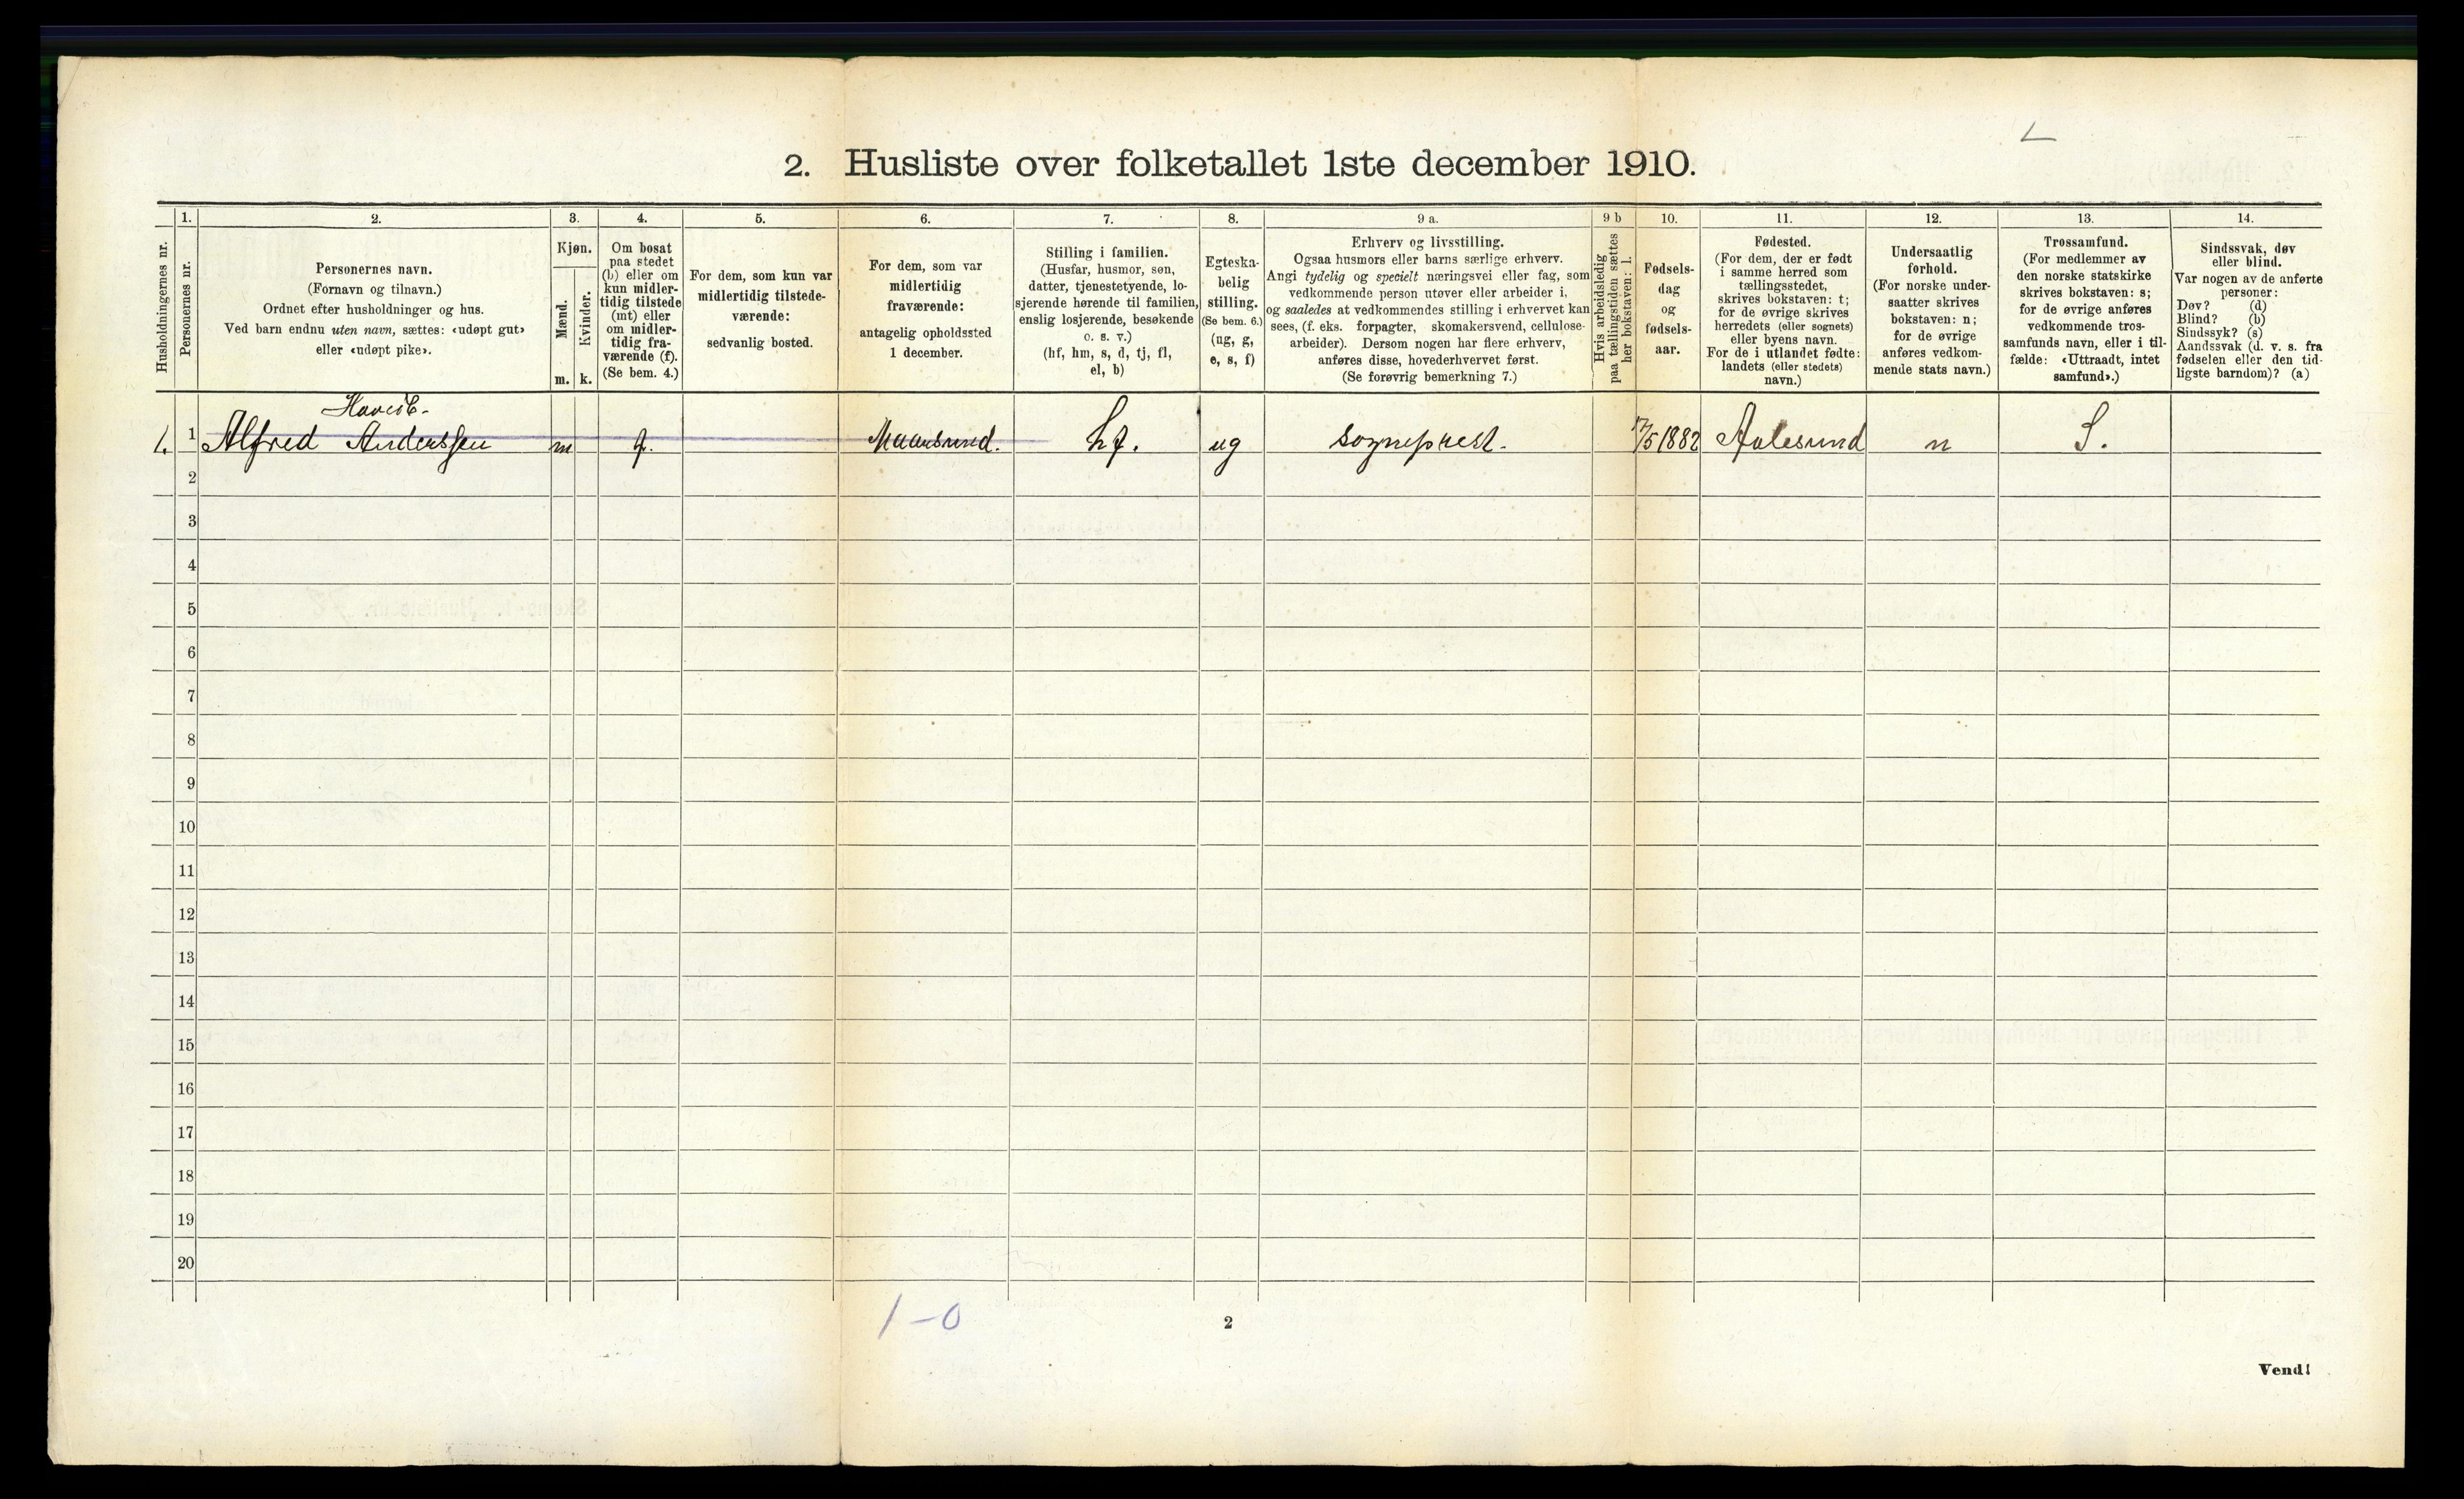 2. Husliste over folketallet 1ste december 1910.
Husholdningernes nr.
1.
Personernes nr.
2.
Personernes navn.
(Fornavn og tilnavn.)
Ordnet efter husholdninger og hus.
Ved barn endnu uten navn, sættes: «udøpt gut»
eller «udøpt pike».
3.
Kjøn.
Mænd.
Kvinder.
m. k.
4.
Om bosat
paa stedet
(b) eller om
kun midler-
tidig tilstede
(mt) eller
om midler-
tidig fra-
værende (f).
(Se bem. 4.)
5.
For dem, som kun var
midlertidig tilstede-
værende:
sedvanlig bosted.
6.
For dem, som var
midlertidig
fraværende:
antagelig opholdssted
1 december.
7.
Stilling i familien.
(Husfar, husmor, søn,
datter, tjenestetyende, lo-
sjerende hørende til familien,
enslig losjerende, besøkende
o. s. v.)
(hf, hm, s, d, tj, fl,
el, b)
8.
Egteska-
belig
stilling.
(Se bem. 6.)
(ug, g,
e, s, f)
9 a.
Erhverv og livsstilling.
Ogsaa husmors eller barns særlige erhverv.
Angi tydelig og specielt næringsvei eller fag, som
vedkommende person utøver eller arbeider i,
og saaledes at vedkommendes stilling i erhvervet kan
sees, (f. eks. forpagter, skomakersvend, cellulose-
arbeider). Dersom nogen har flere erhverv,
anføres disse, hovederhvervet først.
(Se forøvrig bemerkning 7.)
9 b
Hvis arbeidsledig
paa tællingstiden sættes
her bokstaven: l.
10.
Fødsels-
dag
og
fødsels-
aar.
11.
Fødested.
(For dem, der er født
i samme herred som
tællingsstedet,
skrives bokstaven: t;
for de øvrige skrives
herredets (eller sognets)
eller byens navn.
For de i utlandet fødte:
landets (eller stedets)
navn.)
12.
Undersaatlig
forhold.
(For norske under-
saatter skrives
bokstaven: n;
for de øvrige
anføres vedkom-
mende stats navn.)
13.
Trossamfund.
(For medlemmer av
den norske statskirke
skrives bokstaven: s;
for de øvrige anføres
vedkommende tros-
samfunds navn, eller i til-
fælde: «Uttraadt, intet
samfund».)
14.
Sindssvak, døv
eller blind.
Var nogen av de anførte
personer:
Døv? (d)
Blind? (b)
Sindssyk? (s)
Aandssvak (d. v. s. fra
fødselen eller den tid-
ligste barndom)? (a)
1. 1 Alfred Anderssen m f. Maursund. hf. ug sogneprest. 17/5 1882 Aalesund n S.
2
3
4
5
6
7
8
9
10
11
12
13
14
15
16
17
18
19
20
1-0
2
Vend!